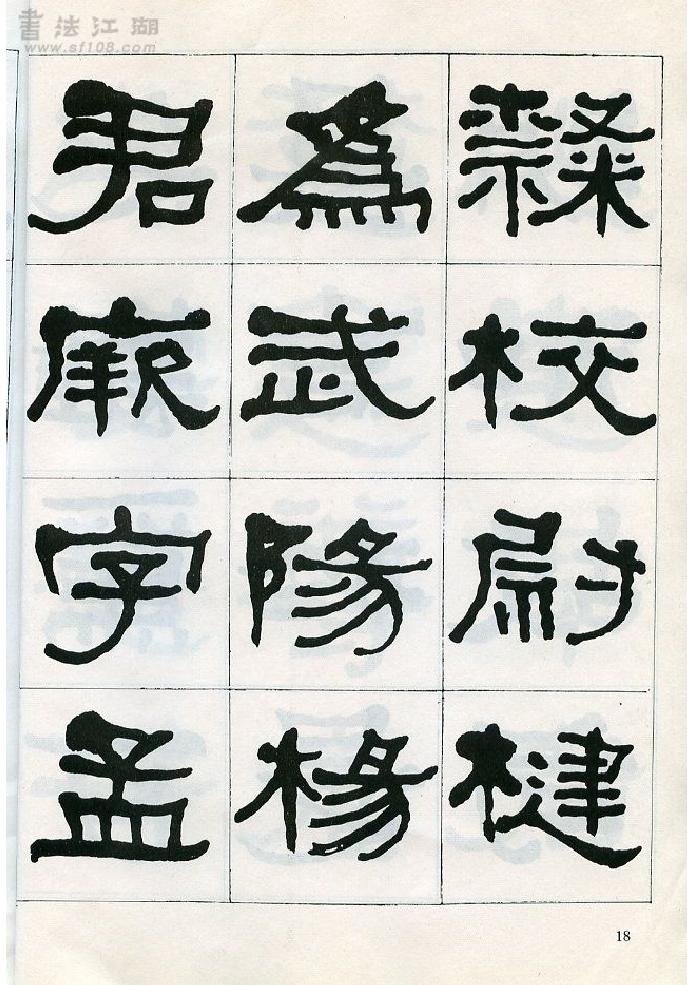 書法江湖
www.sf108.com
隸校尉楗
為武陽楊
君厥字孟
18